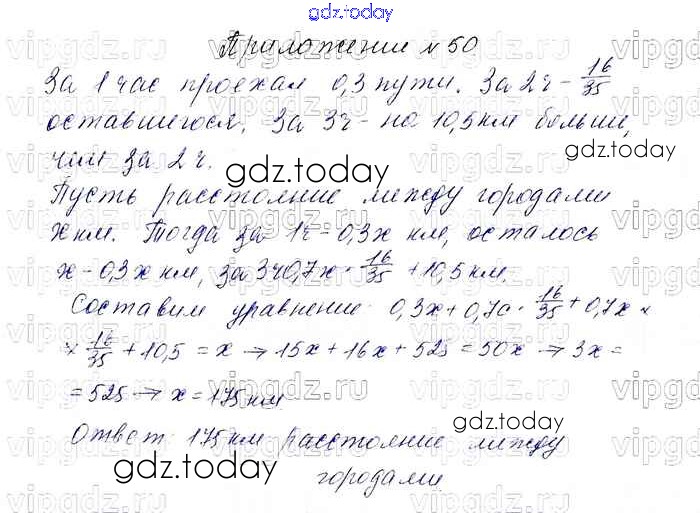 gdz.today
Приложение №50
За 1 час проехал 0,3 пути. За 2ч - 16/35
оставшегося. За 3ч - на 10,5 км больше,
чем за 2 ч.
Пусть расстояние между городами
x км. Тогда за 1ч = 0,3x км, осталось
x - 0,3x км, за 3ч 0,7x · 16/35 + 10,5 км.
Составим уравнение: 0,3x + 0,7x · 16/35 + 0,7x ×
× 16/35 + 10,5 = x → 15x + 16x + 525 = 50x → 3x =
= 525 → x = 175 км
Ответ: 175 км расстояние между
городами
gdz.today
gdz.today
gdz.today
gdz.today
gdz.today
vipgdz.ru